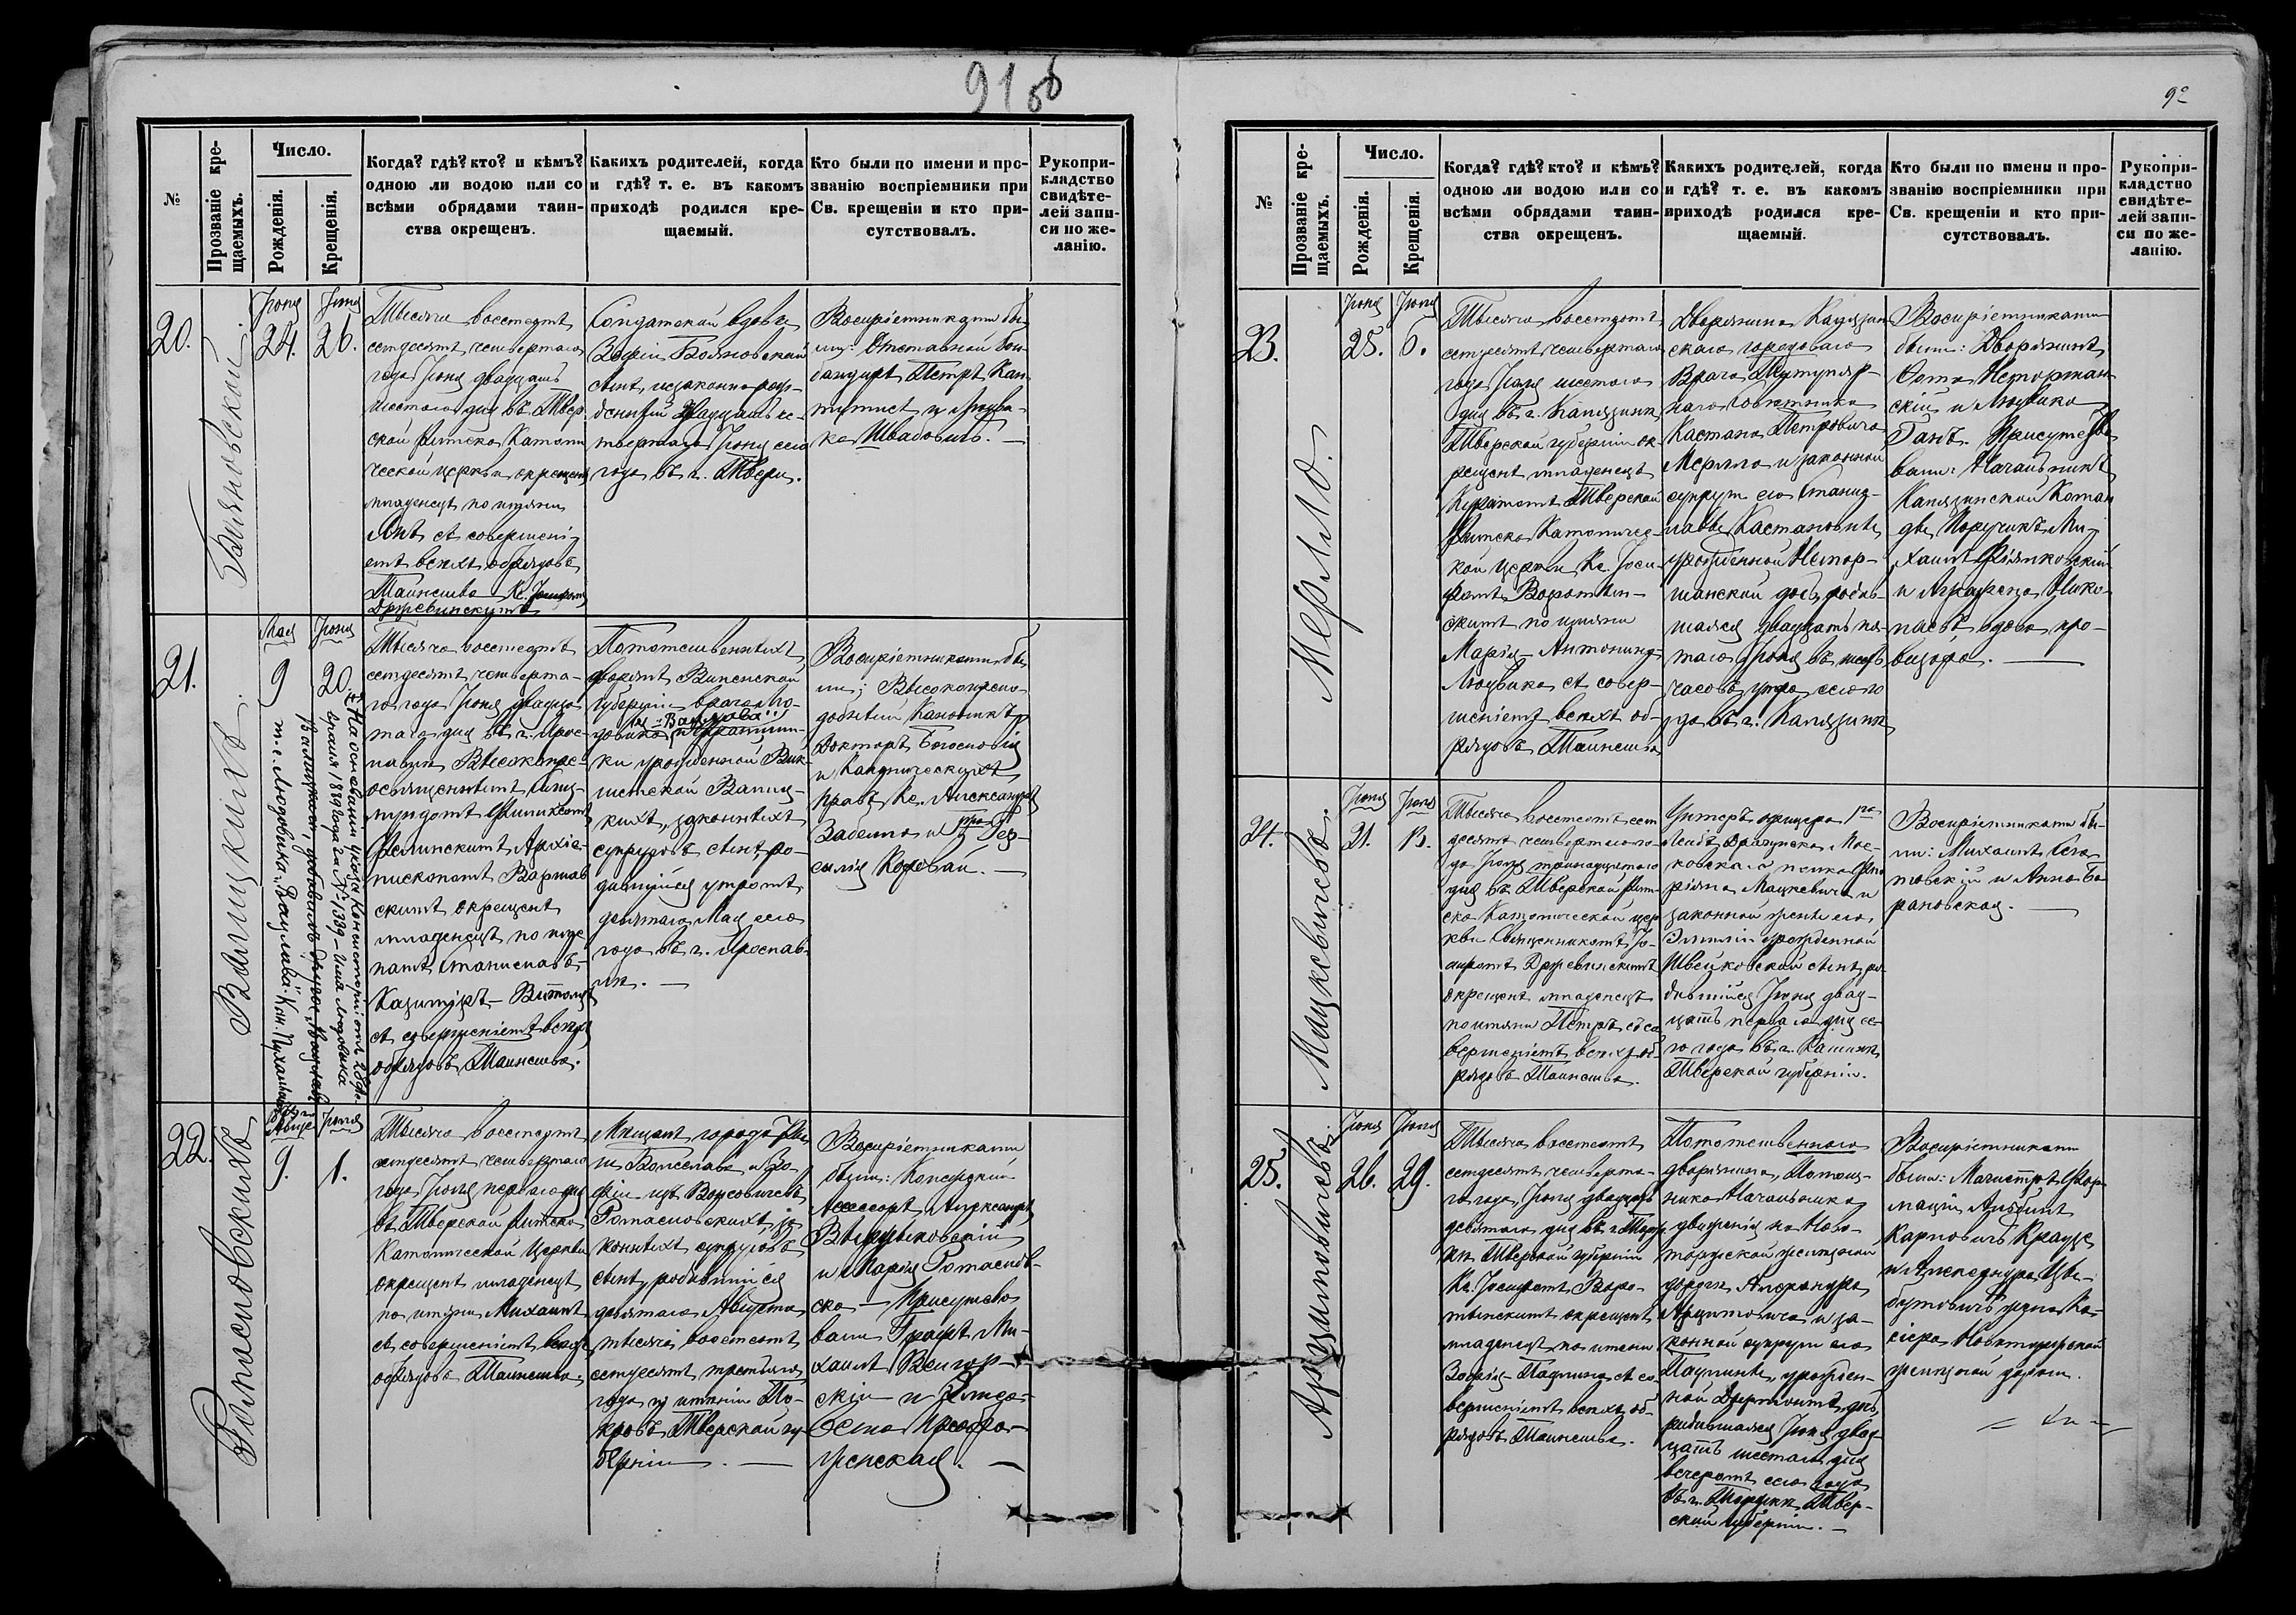 91 об
9°
№
Прозваніе кре-
щаемыхъ.
Число.
Рожденія.
Крещенія.
Когда? гдѣ? кто? и кѣмъ?
одною ли водою или со
всѣми обрядами таин-
ства окрещенъ.
Какихъ родителей, когда
и гдѣ? т. е. въ какомъ
приходѣ родился кре-
щаемый.
Кто были по имени и про-
званію воспріемники при
Св. крещеніи и кто при-
сутствовалъ.
Рукопри-
кладство
свидѣте-
лей запи-
си по же-
ланію.
20.
Бояновскій.
Іюня
24.
Іюня
26.
Тысяча восемьсотъ
семдесятъ четвертаго
года Іюня двадцать
шестаго дня въ Твер-
ской Римско Католи
ческой церкви окрещенъ
младенецъ по имени
съ совершені-
емъ всѣхъ обрядовъ
Таинства Кс.
Држевинскимъ
Солдатской вдовы
Зофіи Бояновской
сынъ, незаконнорож-
денный двадцать че-
твертаго Іюня сего
года въ г. Твери.
Воспріемниками бы
ли: Отставной Бом-
бандиръ Петръ Кан-
и Людви-
ка Швабовичъ. —
21.
Валицкихъ.
Мая
9
Іюня
20.
Тысяча восемьсотъ
семдесятъ четверта-
го года Іюня двадца-
таго дня въ г. Ярос-
лавлѣ Высокопре-
освященнымъ Сигиз-
мундомъ Феликсомъ
Фелинскимъ Архіе-
пископомъ Варшав
скимъ окрещенъ
младенецъ по име
намъ Станиславъ-
Казиміръ-Витольдъ
съ совершеніемъ всѣхъ
обрядовъ Таинства.
Потомственныхъ
дворянъ Виленской
губерніи врача Лю-
и „Вацлава"
довика
ки урожденной Вик-
Валиц-
кихъ, законныхъ
супруговъ сынъ, ро-
дившійся утромъ
девятаго Мая сего
года въ г. Ярослав-
лѣ. —
Воспріемниками бы
ли: Высокопрепо-
добный Каноникъ
Докторъ Богословія
и Каноническихъ
правъ Кс. Александръ
и
Коревай. —
На основаніи указа Консисторіи отъ
1889 года за № 1339 – имя Людовика
т. е. Людовика „Вацлава". Кан.
22.
Ромасновскихъ
Августа
9.
Іюля
1.
Тысяча восемьсотъ
семдесятъ четвертаго
года Іюля перваго дня
въ Тверской Римско
Католической Церкви
окрещенъ младенецъ
по имени Михаилъ
съ совершеніемъ всѣхъ
обрядовъ Таинства.
Мѣщанъ города Ри
ги Болеслава и Зо
фіи изъ Войсовичевъ
Ромасновскихъ, за
конныхъ супруговъ
сынъ, родившійся
девятаго Августа
тысяча восемьсотъ
семдесятъ третьяго
года въ имѣніи По-
кровъ Тверской гу
берніи. —
Воспріемниками
были: Коллежскій
Ассесоръ Александръ
и Марія Ромаснов-
ска — Присутство
вали Графъ Ми-
хаилъ
скій и
Преобра-
женская. —
№
Прозваніе кре-
щаемыхъ.
Число.
Рожденія.
Крещенія.
Когда? гдѣ? кто? и кѣмъ?
одною ли водою или со
всѣми обрядами таин-
ства окрещенъ.
Какихъ родителей, когда
и гдѣ? т. е. въ какомъ
приходѣ родился кре-
щаемый.
Кто были по имени и про-
званію воспріемники при
Св. крещеніи и кто при-
сутствовалъ.
Рукопри-
кладство
свидѣте-
лей запи-
си по же-
ланію.
23.
Мерло.
Іюня
25.
Іюля
6.
Тысяча восемьсотъ
семдесятъ четвертаго
года Іюля шестаго
дня въ г. Калязинѣ
Тверской губерніи ок
рещенъ младенецъ
Куратомъ Тверской
Римско Католичес-
кой церкви Кс. Іоси-
фомъ Воротын-
скимъ по имени
Марія-Антонина-
Людвика съ совер-
шеніемъ всѣхъ об-
рядовъ Таинства
Дворянина Калязин
скаго городоваго
Врача Титуляр-
наго Совѣтника
Каетана Петровича
Мерло и законной
супруги его Станис-
лавы Каетановны
урожденной Немор-
шанской дочь, родив-
шаяся двадцать пя-
таго Іюня въ шесть
часовъ утра сего го
да въ г. Калязинѣ
Воспріемниками
были: Дворянинъ
Нетортан-
скій и Людвика
Ганъ. Присутство
вали: Начальникъ
Калязинской Коман
ды Поручикъ Ми-
хаилъ
и Аграфена Нико-
лаевъ вдова про-
визора. —
24.
Мацкевичевъ.
Іюня
21.
Іюля
13.
Тысяча восемьсотъ сем
десятъ четвертаго го-
да Іюля тринадцатаго
дня въ Тверской Рим-
ско Католической цер
кви Священникомъ Іо-
Држевинскимъ
окрещенъ младенецъ
по имени Петръ съ со
вершеніемъ всѣхъ об-
рядовъ Таинства.
Унтеръ офицера 1го
Лейбъ Драгунскаго Мос-
ковскаго полка Фло
ріана Мацкевича и
законной жены его,
Эмиліи урожденной
Швейковской сынъ, ро-
дившійся Іюня двад-
цать перваго дня се-
го года въ г. Кашинѣ
Тверской губерніи.
Воспріемниками бы-
ли: Михаилъ
и Анна Ба
рановская. —
25.
Арцимовичевъ.
Іюня
26.
Іюня
29.
Тысяча восемьсотъ
семдесятъ четверта-
го года Іюня двадцать
девятаго дня въ г. Торж
кѣ Тверской губерніи
Кс. Іосифомъ Воро-
тынскимъ окрещенъ
младенецъ по имени
Зофія-Паулина съ со
вершеніемъ всѣхъ об-
рядовъ Таинства.
Потомственнаго
дворянина, Помощ-
ника Начальника
движенія по Ново-
торжской желѣзной
дорогѣ Александра
Арцимовича и за-
конной супруги его
Паулины, урожден-
ной дочь,
родившаяся Іюня двад-
цать шестаго дня
вечеромъ сего года
въ г. Торжкѣ Твер-
ской губерніи. —
Воспріемниками
были: Магистръ Фар-
маціи Альбинъ
Карловичъ Краузе
и Александра Цви-
жена Ка-
сіера Новоторжской
желѣзной дороги.